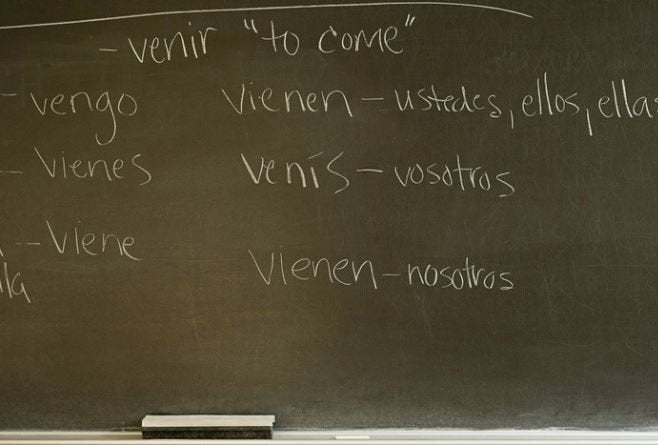 - venir "to come"
- vengo
vienen - ustedes, ellos, ellas
-- vienes
venís - vosotros
-- viene
lla
vienen - nosotros